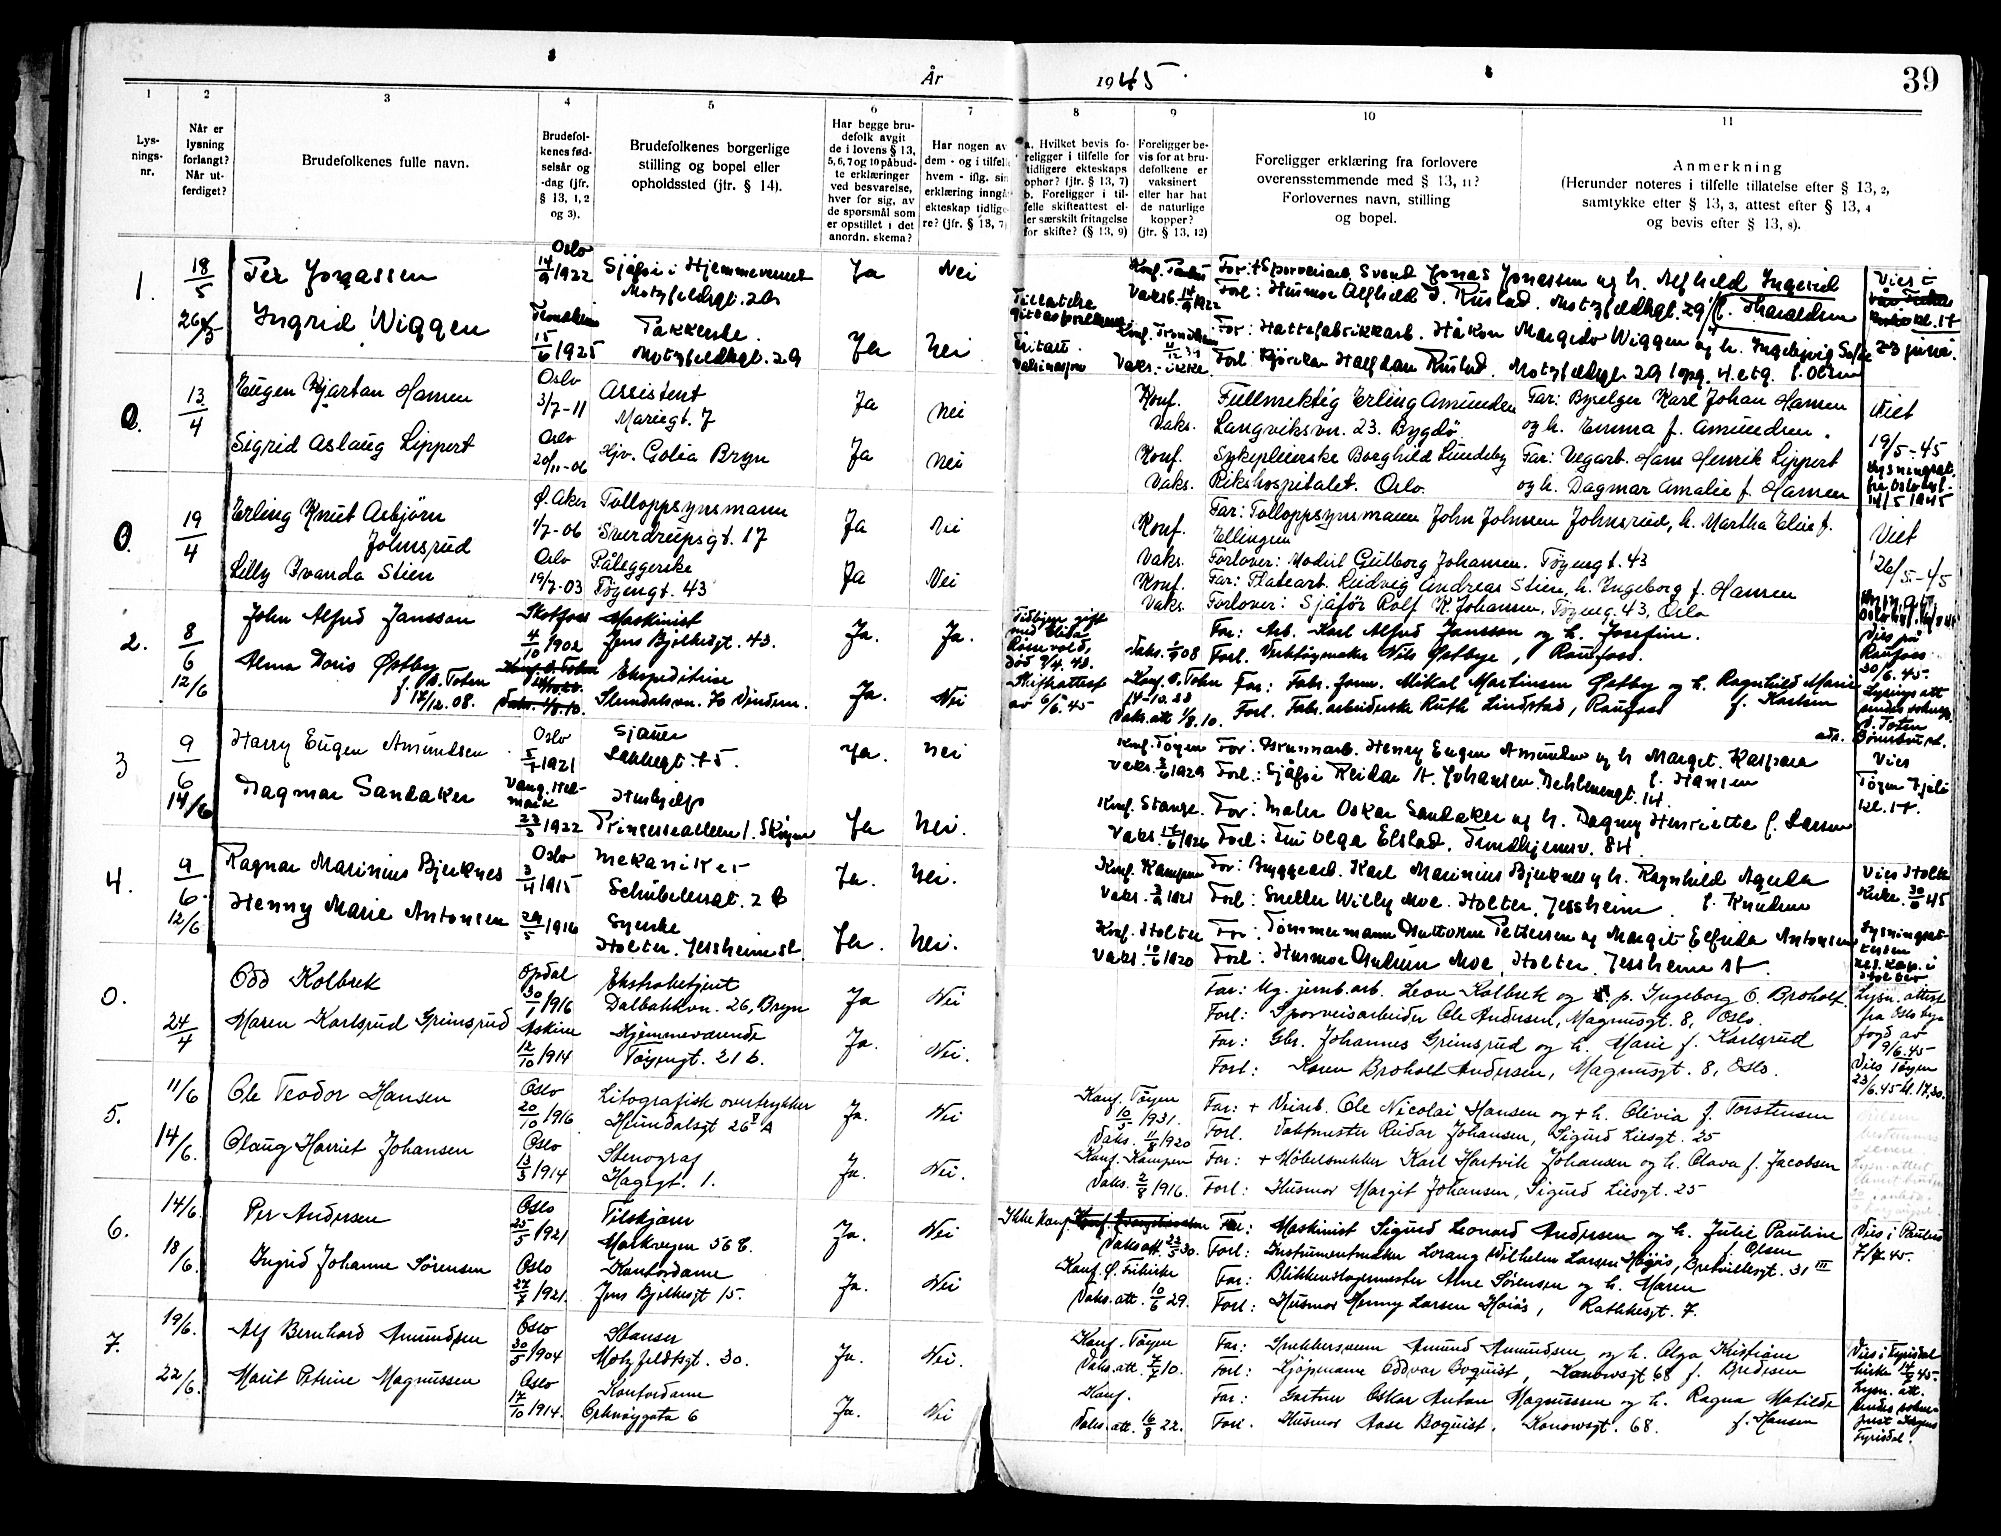 År 1945
39
1 2 3 4 5 6 7 8 9 10 11
Lys-
nings-
nr.
Når er
lysning
forlangt?
Når ut-
ferdiget?
Brudefolkenes fulle navn.
Brudefol-
kenes fød-
selsår og
-dag (jfr.
§ 13, 1, 2
og 3).
Brudefolkenes borgerlige
stilling og bopel eller
opholdssted (jfr. § 14).
Har begge bru-
defolk avgit
de i lovens § 13,
5, 6, 7 og 10 påbud-
te erklæringer
ved besvarelse,
hver for sig, av
de spørsmål som
er opstillet i det
anordn. skema?
Har nogen av
dem - og i tilfelle
hvem - iflg. sin
erklæring inngå
ekteskap tidlige-
re? (jfr. § 13, 7)
a. Hvilket bevis fo-
religger i tilfelle for
tidligere ekteskaps
ophør? (jfr. § 13, 7)
b. Foreligger i til-
felle skifteattest el-
ler særskilt fritagelse
for skifte? (§ 13, 9)
Foreligger be-
vis for at bru-
defolkene er
vaksinert
eller har hat
de naturlige
kopper?
(jfr. § 13, 12)
Foreligger erklæring fra forlovere
overensstemmende med § 13, 11?
Forlovernes navn, stilling
og bopel.
Anmerkning
(Herunder noteres i tilfelle tillatelse efter § 13, 2,
samtykke efter § 13, 3, attest efter § 13, 4
og bevis efter § 13, 8).
1. 18/5 Per Jonassen Oslo 14/9 1922 Sjåfør i Hjemmevernet Motzfeldtsgt. 29 Ja Nei
Vaks. Far: + Sporveisarb. Svend Jonas Jonassen og h. Alfhild Ingerid f. Haraldsen
Forl: Husmor Alfhild I. Rustad. Motzfeldtsgt. 29
Ingrid Wiggen Trondheim 15/6 1925 Pakkerske Motzfeldtsgt. 29 Ja Nei.
Vaks: ikke. Far: Hattefabrikkarb. Håkon Margido Wiggen og h. Ingebjørg Sofie f. Olsen
Forl: Halfdan Rustad. Motzfeldtsgt. 29
Vies i kl. 17 23 juni.
0. 13/4 Eugen Kjartan Hansen Oslo 3/7-11 Assistent Mariegt. 7 Ja Nei
Konf. Vaks. Fullmektig Erling Amundsen Langviksvn. 23. Bygdø Far: Byselger Karl Johan Hansen og h. Emma f. Amundsen.
Sigrid Aslaug Lippert Oslo 20/11-06 Hjv. Golia Bryn Ja Nei
Konf. Vaks. Sykepleierske Borghild Lundeby Rikshospitalet. Oslo. Far: Vegarb. Hans Henrik Lippert og h. Dagmar Amalie f. Hansen
Viet 19/5-45 14/5 1945
0. 19/4 Erling Knut Asbjørn Johnsrud Ø. Aker 1/7-06 Tolloppsynsmann Sverdrupsgt. 17 Ja Nei
Konf. Vaks. Far: Tolloppsynsmann John Johnsen Johnsrud, h. Martha Elise f. Ellingsen
Forlover: Modist Gulborg Johansen. Tøyengt. 43
Lilly Ivanda Stien Oslo 19/7-03 Påleggerske Tøyengt. 43 Ja Nei
Konf. Vaks. Far: Platearb. Ludvig Andreas Stien, h. Ingeborg f. Hansen
Forlover: Sjåfør Rolf K. Johansen, Tøyeng. 43, Oslo
Viet 26/5-45
2. 8/6 12/6 John Alfred Jansson Skotfoss 4/10 1902 Maskinist Jens Bjelkesgt. 43. Ja. Ja.
Tidligere gift med død 9/4. 43. Skifteattest av 6/6. 45
Vaks. 1/9 08 Far: Arb. Karl Alfred Jansson og h. Josefine.
Forl. Verktøymaker Nils Østbye, Raufoss.
Alma Doris Østby f. Ø. Toten 17/12. 08. Ekspeditrise Slemdalsvn. 70 Vinderen. Ja. Nei
Konf. Ø. Toten Vaks. att. 1/8. 10. Far: Fabr. form. Mikal Martinsen Østby og h. Ragnhild Marie f. Karlsen
Forl. Fabr. arbeiderske Ruth Lindstad, Raufoss
Vies på Raufoss 30/6. 45.
3 9/6 14/6 Harry Eugen Amundsen Oslo 1921 Sjauer 75. Ja. Nei
Konf. Tøyen Vaks. 1929 Far: Brønnarb. Henry Eugen Amundsen og h. Margit. Kaspara f. Hansen
Forl: Sjåfør Reidar A. Johansen. Dehlenengt. 14
Dagmar Sandaker Vang. Hedmark 23/3 1922 Hushjelp Prinsessealleen 1. Skøyen Ja Nei.
Konf. Stange Vaks. 17/6 1926 Far: Maler Oskar Sandaker og h. Dagny Henriette f. Larsen
Forl: Fru Olga Elstad, Trondhjemsv. 84.
Vies Tøyen 7 juli kl. 17.
4. 9/6. 12/6 Ragnar Marinius Bjerknes Oslo 3/4 1915 Mekaniker Schübelersgt. 2 Ja. Nei.
Konf. Kampen Vaks. 1921 Far: Byggearb. Karl Marinius Bjerknes og h. Ragnhild Agusta f. Knudsen
Forl: Sneller Willy Moe. Holter, Jessheim.
Henny Marie Antonsen 29/5 1916 Syerske Holter. Jessheim st. Ja. Nei.
Konf. Holter Vaks. 10/6 1920 Far: Tømmermann Guttorm Pettersen og Margit Elfrida Antonsen
Forl: Husmor Gudrun Moe, Holter Jessheim st.
Vies Holter Kirke. 30/6 45
0. 24/4 Odd Kolbrek Opdal 30/1 1916 Ekstrabetjent Dalbakkvn. 26, Bryn Ja Nei
Far: Ug. jernb.arb. Leon Kolbrek og p. Ingeborg O. Broholt.
Forl: Sporveisarbeider Ole Andersen, Magnusgt. 8, Oslo.
Maren Karlsrud Grimsrud Askim 12/10 1914 Hjemmeværende Tøyengt. 21 b. Ja. Nei.
Far: Gbr. Johannes Grimsrud og h. Marie f. Karlsrud
Forl: Karen Broholt Andersen, Magnusgt. 8, Oslo.
Lysn. attest fra Oslo byfogd av 9/6. 45 Vies Tøyen 23/6. 45 kl. 17,30.
5. 11/6 14/6. Ole Teodor Hansen Oslo 20/10 1916 Litografisk overtrykker Heimdalsgt 26 A Ja. Nei
Konf. Tøyen 10/5 1931. Vaks. 1920 Far: + Veiarb. Ole Nicolai Hansen og + h. Olivia f. Torstensen
Forl. Vaktmester Reidar Johansen, Sigurd Liesgt. 25
Olaug Harriet Johansen Oslo 13/3 1914 Stenograf Hagegt. 1. Ja. Nei.
Konf. Kampen Vaks. 2/8 1916. Far: + Møbelsnekker Karl Hartvik Johansen og h. Olava f. Jacobsen
Forl: Husmor Margit Johansen, Sigurd Liesgt. 25
6. 14/6. 18/6. Per Andersen Oslo 25/5 1921 Tilskjærer Markveien 56 C. Ja. Nei
Ikke konf. Vaks att. 23/5 30. Far: Maskinist Sigurd Leonard Andersen og h. Julie Pauline f. Olsen
Forl: Instrumentmaker Lorang Wilhelm Larsen Høgås, Bredtvedtsgt. 31 III
Ingrid Johanne Sørensen Oslo 27/7 1921. Kontordame Jens Bjelkesgt 15. Ja. Nei
Konf. Ø. Frikirke Vaks. att. 10/6 29. Far: Blikkenslagermester Arne Sørensen og h. Maren
Forl: Husmor Henny Larsen Høiås, Rathkesgt. 7.
Vies i Paulus 7/7. 45.
7. 19/6. 22/6. Alf Bernhard Amundsen Oslo 30/5 1904 Stanser Motzfeldtsgt. 30. Ja. Nei.
Konf. Tøyen Vaks. att. 7/7 10. Far: Snekkersvenn Amund Amundsen og h. Olga Kristiane f. Bredesen
Forl: Kjøpmann Oddvar Boquist, Konowsgt 68
Marit Petrine Magnussen Oslo 17/10 1914. Kontordame Orknøygata 6 Ja. Nei
Konf. Vaks. att. 16/8 22. Far: Gartner Oskar Anton Magnussen og h. Ragna Matilde f. Hansen
Forl. Husmor Aase Boquist, Konowsgt. 68.
Vies i Fyresdal kirke 14/7 45.